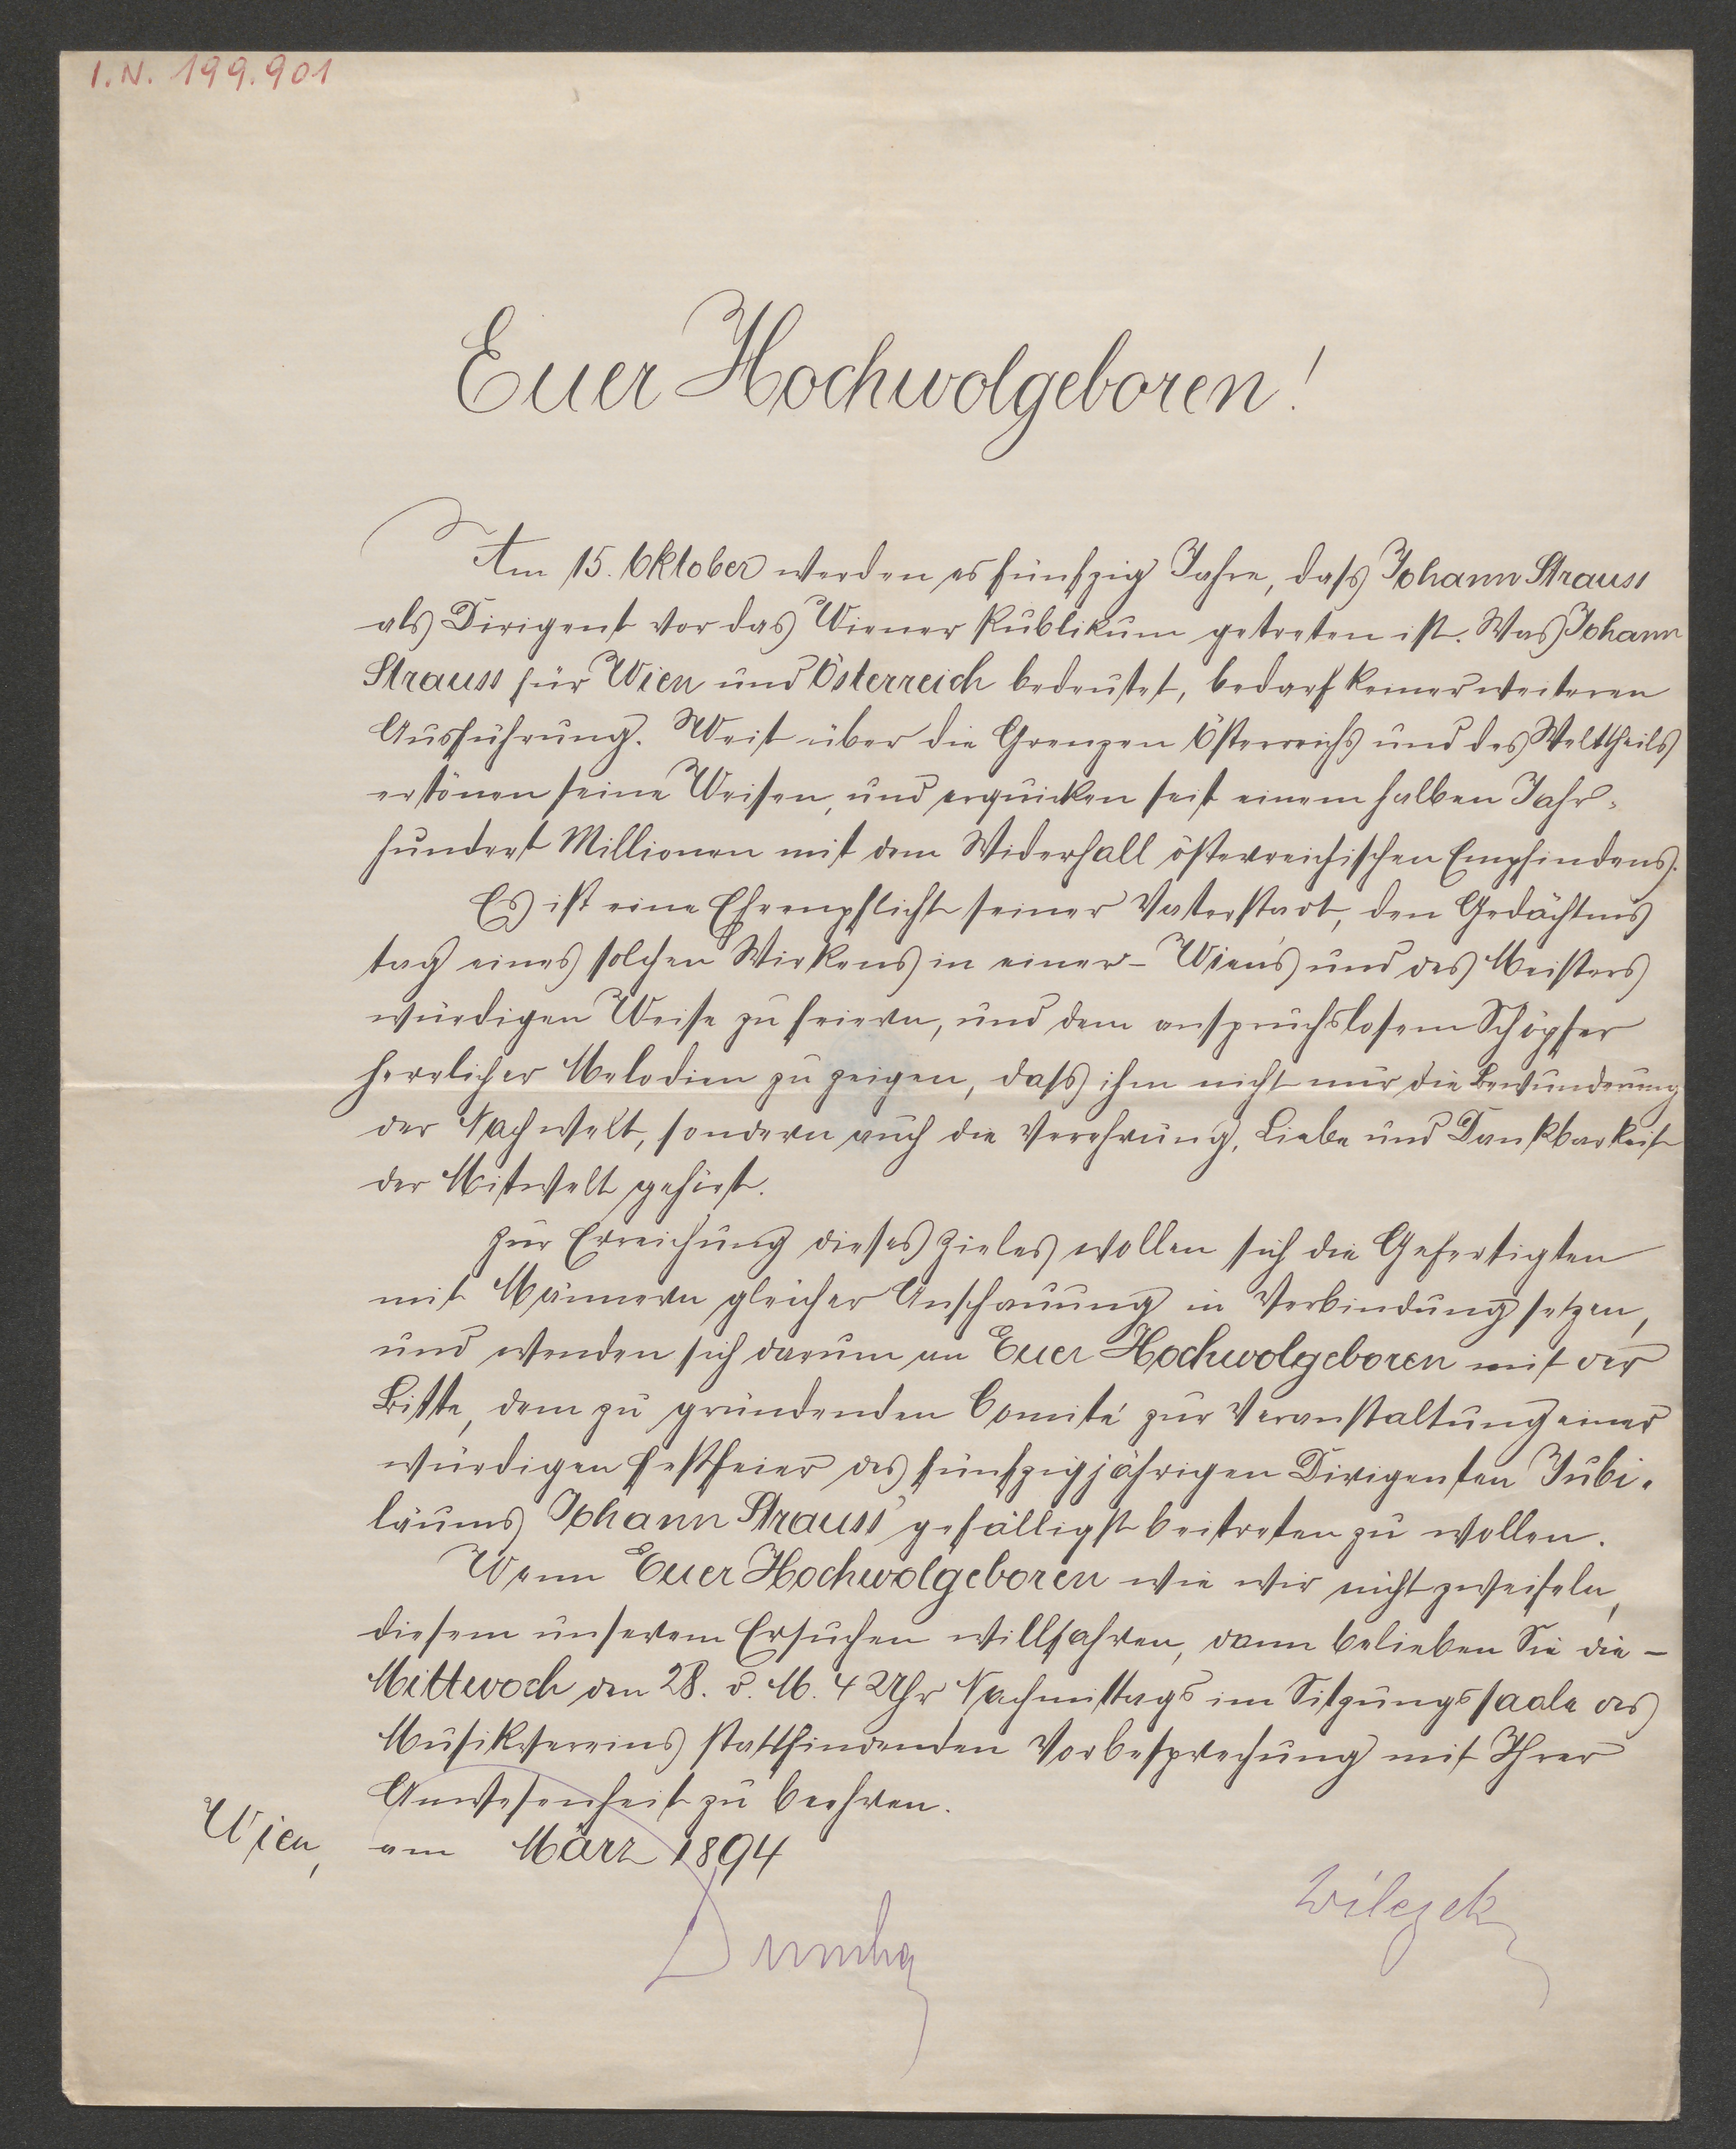 I.N. 199.901
Euer Hochwolgeboren!
Am 15. Oktober werden es fünfzig Jahre, dass Johann Strauss
als Dirigent vor das Wiener Publikum getreten ist. Was Johann
Strauss für Wien und Österreich bedeutet, bedarf keiner weiteren
Ausführung. Weit über die Grenzen Österreichs und des Welttheils
ertönen seine Weisen, und erquicken seit einem halben Jahr-
hundert Millionen mit dem Widerhall österreichischen Empfindens.
Es ist eine Ehrenpflicht seiner Vaterstadt, den Gedächtnis
tag eines solchen Wirkens in einer - Wien's und des Meisters
würdigen Weise zu feiern, und dem anspruchslosem Schöpfer
herrlicher Melodien zu zeigen, dass ihm nicht nur die Bewunderung
der Nachwelt, sondern auch die Verehrung, Liebe und Dankbarkeit
der Mitwelt gehört.
Zur Erreichung dieses Zieles wollen sich die Gefertigten
mit Männern gleicher Anschauung in Verbindung setzen,
und wenden sich darum an Euer Hochwolgeboren mit der
Bitte, dem zu gründenden Comité zur Veranstaltung einer
würdigen Festfeier des fünfzigjährigen Dirigenten Jubi-
läums Johann Strauss' gefälligst beitreten zu wollen.
Wenn Euer Hochwolgeboren wie wir nicht zweifeln,
diesem unserem Ersuchen willfahren, dann belieben Sie die -
Mittwoch den 28. d. M. 4 Uhr Nachmittags im Sitzungssaale des
Musikvereins stattfindenden Vorbesprechung mit Ihrer
Anwesenheit zu beehren.
Wien, am März 1894
Dumba Wilczek